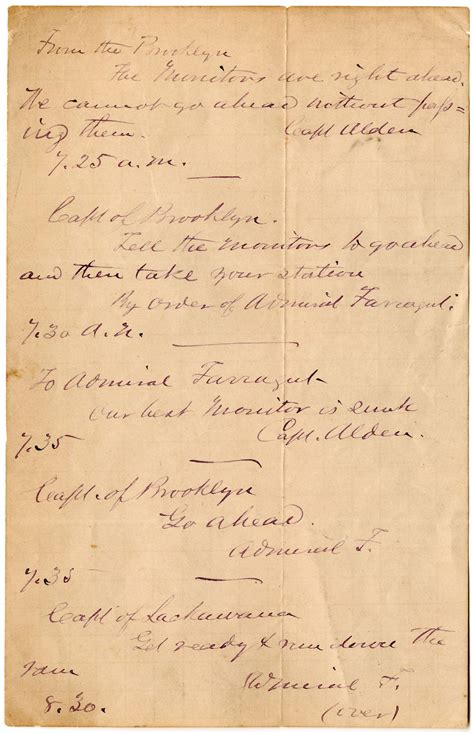 From the Brooklyn
The Monitors are right ahead.
We cannot go ahead without pass=
ing them. Capt Alden
7.25 a.m.
Capt of Brooklyn.
Tell the Monitors to go ahead
and then take your station
By order of Admiral Farragut.
7.30 A.M.
To Admiral Farragut
our best Monitor is sunk
7.35 Capt. Alden.
Capt. of Brooklyn
Go ahead.
Admiral F.
7.35
Capt of Lackawana
Get ready & run down the
ram Admiral F.
8.30. (over)